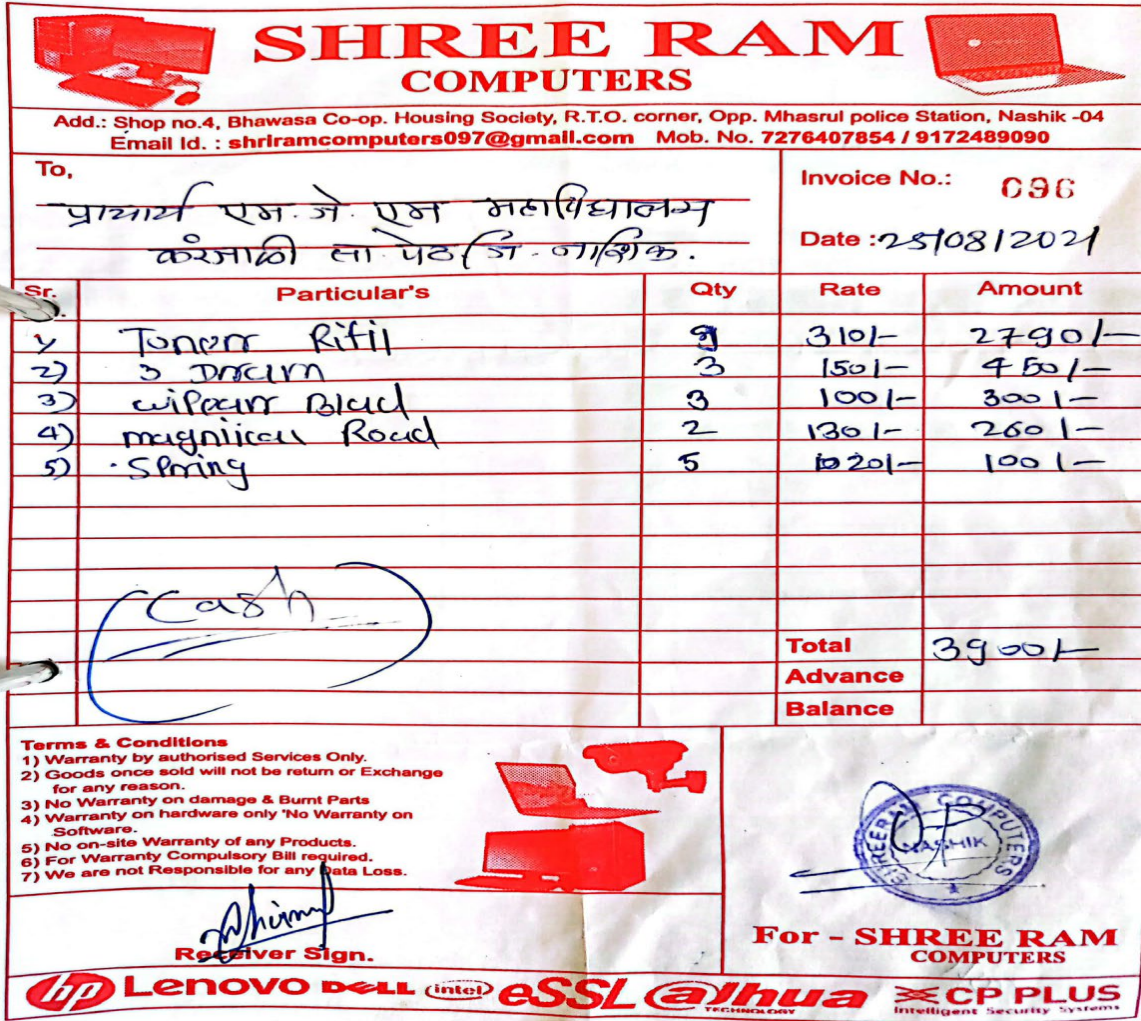 SHREE RAM
COMPUTERS
Add.: Shop no.4, Bhawasa Co-op. Housing Society, R.T.O. corner, Opp. Mhasrul police Station, Nashik -04
Email Id. : shriramcomputers097@gmail.com Mob. No. 7276407854 / 9172489090
To,
प्राचार्य एम. जे. एम महाविद्यालय
करंजाळी ता. पेठ जि. नाशिक.
Invoice No.: 096
Date : 25/08/2021
Sr. Particular's Qty Rate Amount
1) Tonerr Rifil 9 310/- 2790/-
2) 3 Drum 3 150/- 450/-
3) Blad 3 100/- 300/-
4) Road 2 130/- 260/-
5) Spring 5 20/- 100/-
Cash
Total 3900/-
Advance
Balance
Terms & Conditions
1) Warranty by authorised Services Only.
2) Goods once sold will not be return or Exchange
for any reason.
3) No Warranty on damage & Burnt Parts
4) Warranty on hardware only 'No Warranty on
Software.
5) No on-site Warranty of any Products.
6) For Warranty Compulsory Bill required.
7) We are not Responsible for any Data Loss.
Receiver Sign.
SHREERAM COMPUTERS
NASHIK
For - SHREE RAM
COMPUTERS
hp Lenovo DELL intel eSSL alhua TECHNOLOGY CP PLUS
Intelligent Security Systems